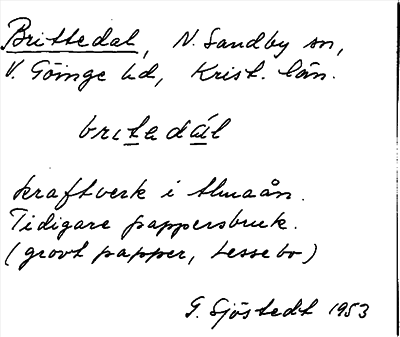 Brittedal, N. Sandby sn,
V. Göinge hd, Krist. län.
britadál
kraftverk i Almaån.
Tidigare pappersbruk.
(grovt papper, Lessebo)
G. Sjöstedt 1953